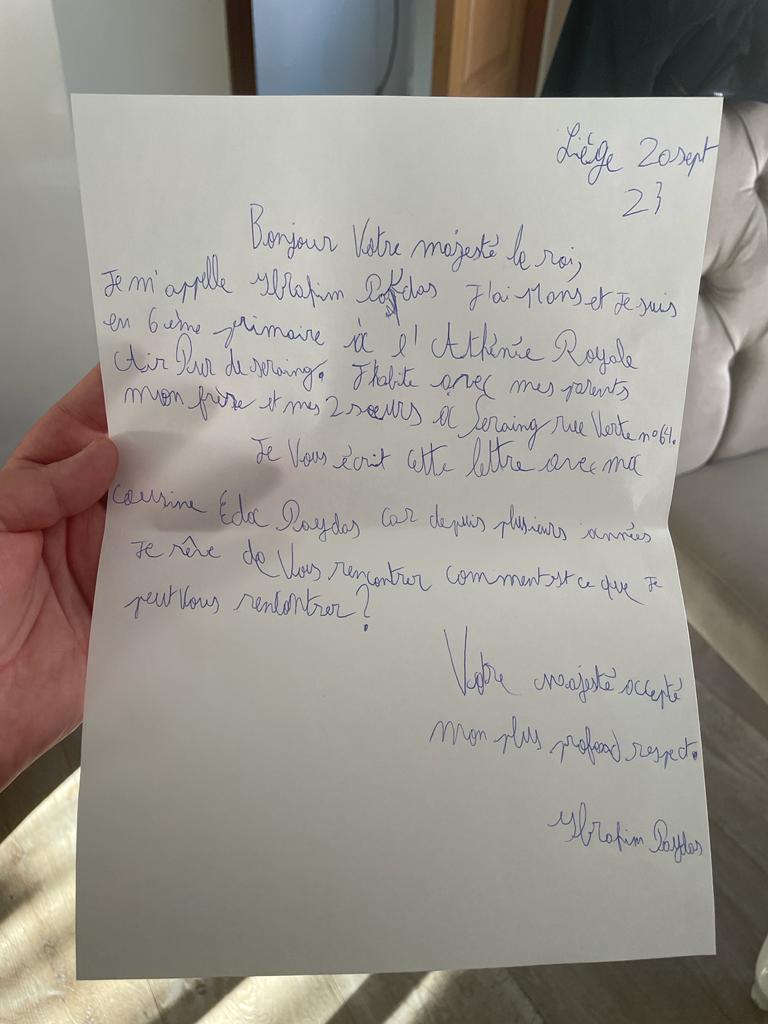 Liége 20 sept
23
Bonjour Votre majesté le roi,
Je m'appelle Ibrahim Paydas J'ai 11 ans et Je suis
en 6 ème primaire à l'Athénée Royale
Air Pur de seraing. J'habite avec mes parents
mon frère et mes 2 sœurs à Seraing rue Verte n°64.
Je Vous écrit cette lettre avec ma
cousine Eda Paydas car depuis plusieurs années
Je rêve de Vous rencontrer comment est ce que Je
peut Vous rencontrer?
Votre majesté accepté
mon plus profond respect.
Ibrahim Paydas